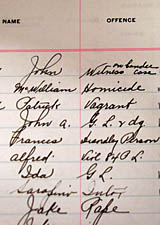 NAME OFFENCE
John Witness on Murder case
McWilliam Homicide
Patrick Vagrant
John A. G. L. & dg
Francis Disorderly Person
Alfred Viol
Ida G. L.
Sarafino Intox
Jake Rape